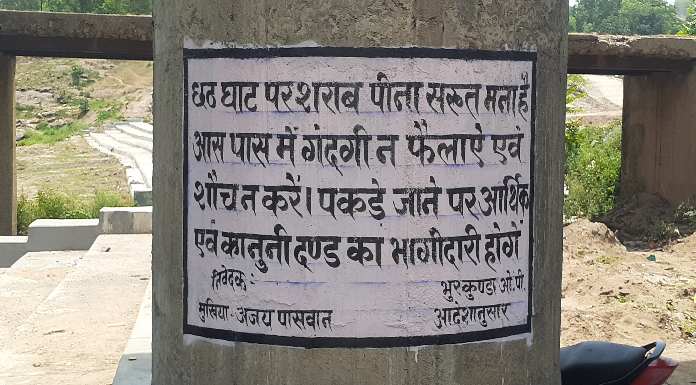 छठ घाट पर शराब पीना सख्त मना है
आस पास में गंदगी न फैलाऐ एवं
शौच न करें। पकड़े जाने पर आर्थिक
एवं कानुनी दण्ड का भागीदारी होगें
निवेदक:
भुरकुण्डा ओ.पी.
मुखिया - अजय पासवान
आदेशानुसार